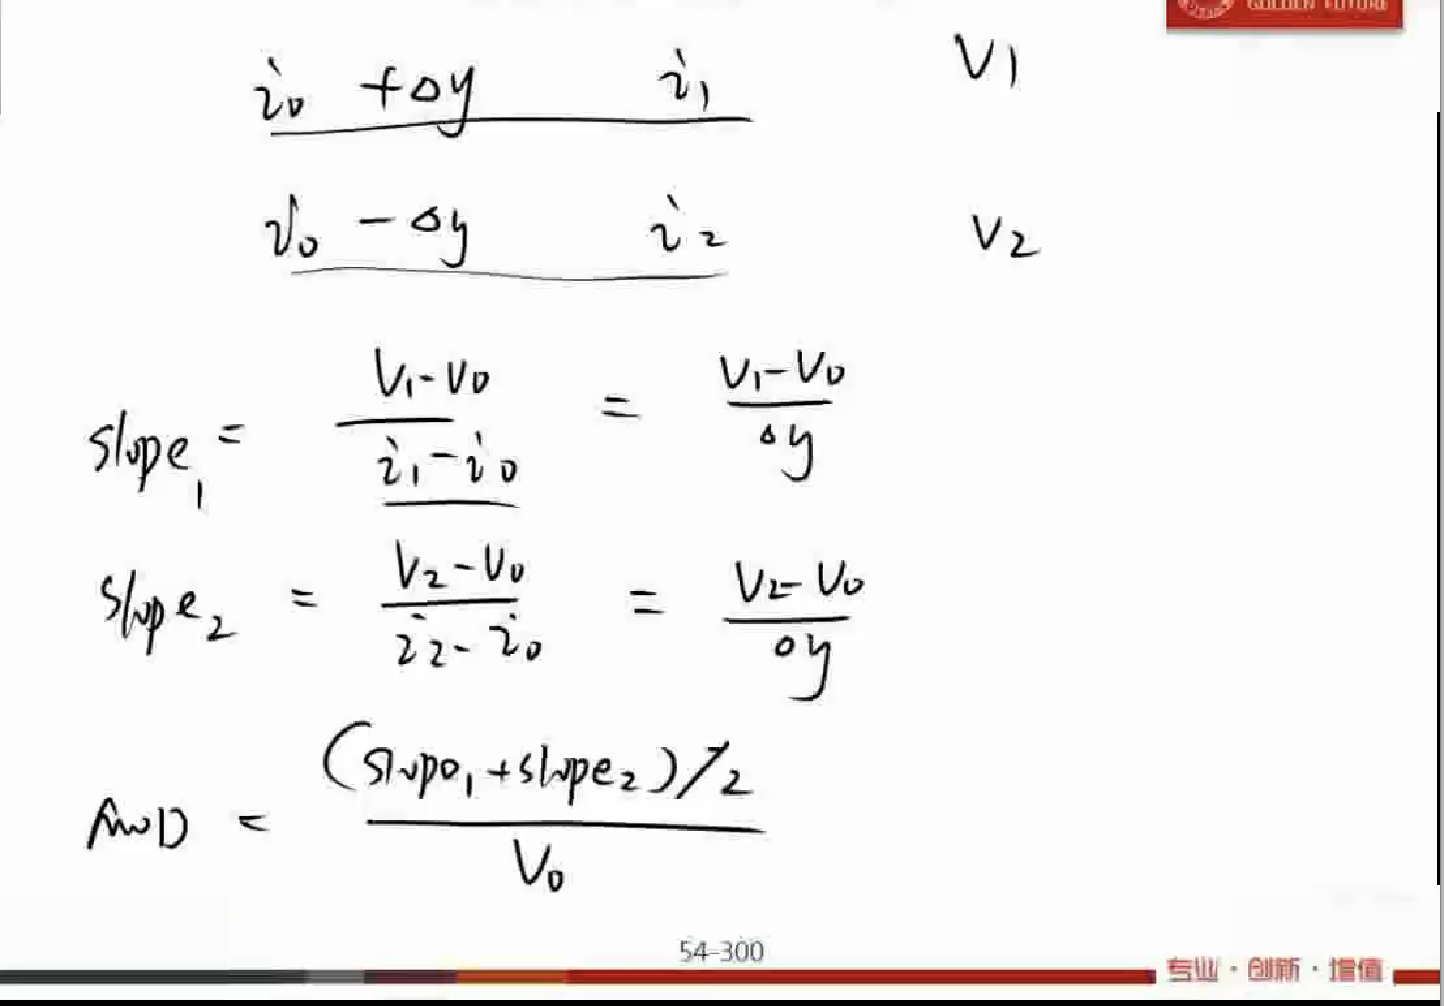 GOLDEN FUTURE
i₀ +Δy i₁ V1
i₀ -Δy i₂ V2
slope₁ = (V₁-V₀)/(i₁-i₀) = (V₁-V₀)/Δy
slope₂ = (V₂-V₀)/(i₂-i₀) = (V₂-V₀)/Δy
(slope₁+slope₂)/2
= V₀
54-300
专业·创新·增值